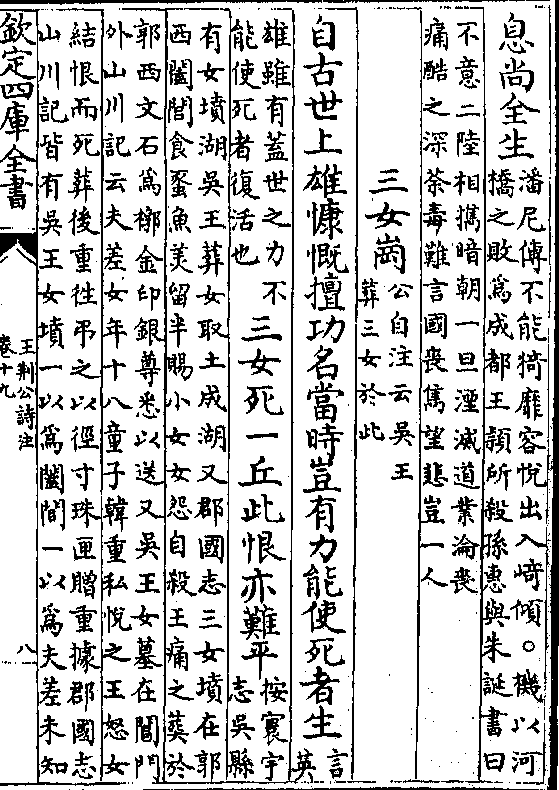 息尚全生潘尼傳不能猗靡容悅出入崎傾。機以河
橋之敗為成都王穎所殺孫惠與朱誕書曰
不意二陸相擕暗朝一旦湮滅道業淪喪
痛酷之深荼毒難言國喪雋望悲豈一人
三女崗公自注云吳王
葬三女於此
自古世上雄慷慨擅功名當時豈有力能使死者生言英
雄雖有蓋世之力不
能使死者復活也三女死一丘此恨亦難平按寰宇
志吳縣
有女墳湖吳王葬女取土成湖又郡國志三女墳在郭
西闔閭食蒸魚羙留半賜小女女怨自殺王痛之葬於
郭西文石為槨金印銀尊悉以送又吳王女墓在閶門
外山川記云夫差女年十八童子韓重私悅之王怒女
結恨而死葬後重徃弔之以徑寸珠匣贈重據郡國志
山川記皆有吳王女墳一以為闔閭一以為夫差未知
欽定四庫全書
王荆公詩注
卷十九
八